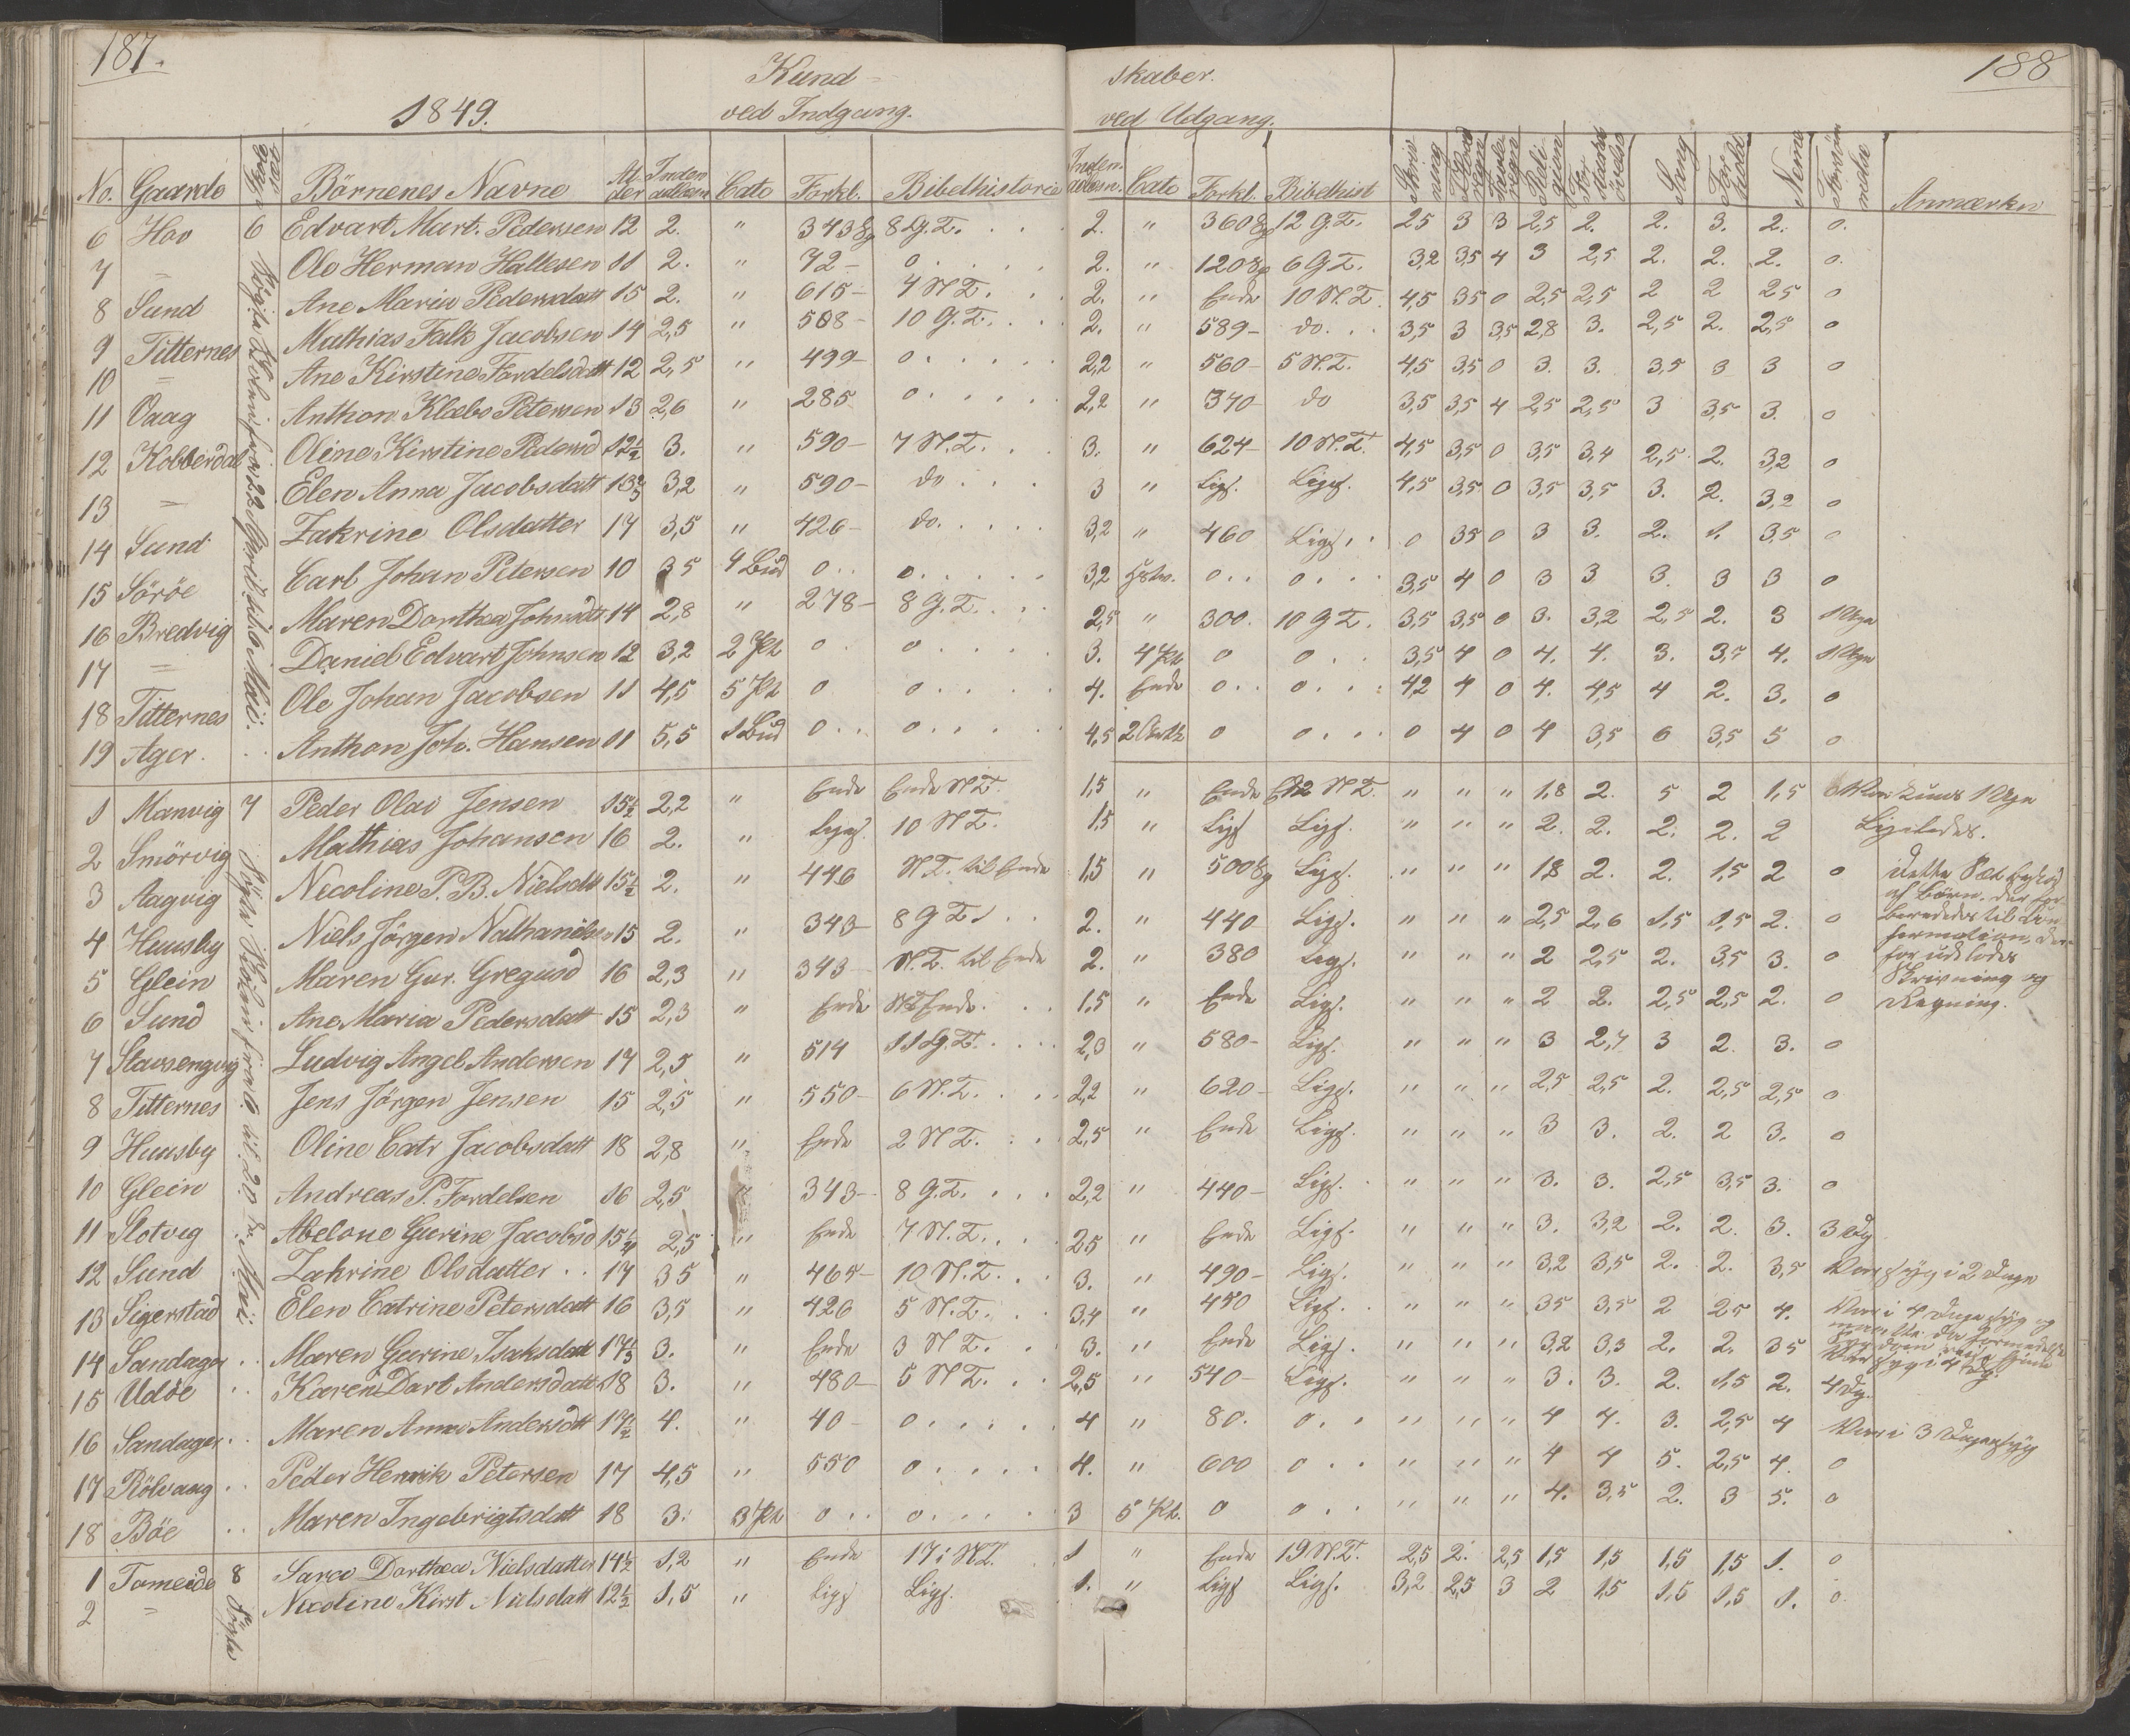 187. 188
Kund- skaber.
1849. ved Indgang. ved Udgang.
No. Gaarde Börnenes Navne Al der Inden adlæsn Cate Forkl. Bibelhistorie Inden adlæsn. Cate Forkl. Bibelhist Skriv ning Tavle regn Reli gion Sang For hold Nemme Forsöm melse Anmærkn
6 Hov 6 Edvart Mart. Pedersen 12 2. " 343 8 G.T. 2. " 360 12 G.T. 25 3 3 2,5 2. 2. 3. 2. 0.
7 = Ole Herman Hallesen 11 2. " 72- 0 2. " 120 6 G T. 3,2 3,5 4 3 2,5 2. 2. 2. 0.
8 Sund Ane Maria Pedersdatt 15 2. " 615- 4 N T. 2. " Ende 10 N.T. 4,5 35 0 2,5 2,5 2 2 25 0
9 Titternes Mathias Falk Jacobsen 14 2,5 " 508- 10 G.T. 2. " 589- do. 3,5 3 3,5 2,8 3. 2,5 2. 2,5 0
10 = Ane Kirstine Fordelsdatt 12 2,5 " 499- 0 2,2 " 560- 5 N.T. 4,5 3,5 0 3. 3. 3,5 3 3 0
11 Vaag Anthon Klæbo Petersen 13 2,6 " 285 0 2,2 " 340- do 3,5 3,5 4 2,5 2,5 3 3,5 3. 0
12 Kobberdal Oline Kirstine Pedersd 12½ 3. " 590- 7 N.T. 3. " 624- 10 N.T. 4,5 3,5 0 3,5 3,4 2,5 2. 3,2 0
13 = Elen Anna Jacobsdatt 13⅔ 3,2 " 590- do 3 " Ligs. Ligs. 4,5 3,5 0 3,5 3,5 3. 2. 3,2 0
14 Sund Zakrine Olsdatter 17 3,5 " 426- do. 3,2 " 460 Ligs. 0 35 0 3 3. 2. 1. 3,5 0
15 Söröe Carl Johan Petersen 10 35 4 Bud 0 0 3,2 0 0 3,5 4 0 3 3 3. 3 3 0
16 Bredvig Maren Dorthea Johnsdtt 14 2,8 " 278- 8 G.T. 2,5 " 300. 10 G T. 3,5 3,5 0 3. 3,2 2,5 2. 3 1 Uge
17 = Daniel Edvart Johnsen 12 3,2 2 Pt 0 0 3. 4 Pt 0 0 3,5 4 0 4. 4. 3. 3,5 4. 1 Uge
18 Titternes Ole Johan Jacobsen 11 4,5 5 Pt 0 0 4. Ende 0 0 42 4 0 4. 4,5 4 2. 3. 0
19 Ager. Anthon Joh. Hansen 11 5,5 1 Bud 0 0 4,5 2 0 0 0 4 0 4 3,5 6 3,5 5 0
1 Manvig 7 Peder Olai Jensen 15½ 2,2 " Ende Ende N.T. 1,5 " Ende 12 N T. " " " 1,8 2. 5 2 1,5 Var kuns 1 Uge
2 Smörvig Mathias Johansen 16 2. " Ligs. 10 N T. 1,5 " Ligs Ligs. " " " 2. 2. 2. 2. 2 Ligeledes.
3 Aagvig Necoline P. B. Nielsdtt 15½ 2. " 446 N.T. til Ende 1,5 " 500 Ligs. " " " 1,8 2. 2. 1,5 2 0 I dette Sæt
4 Huusby Niels Jörgen Nathanielsen 15 2. " 343- 8 G T. 2. " 440 Ligs. " " " 2,5 2,6 1,5 1,5 2. 0 af Börn, der for- beredes til Con-
5 Glein Maren Gur. Gregusd 16 2,3 " 343- N.T. til Ende 2. " 380 Ligs. " " " 2 2,5 2. 3,5 3. 0 firmation, der- for udelodes
6 Sund Ane Maria Pedersdatt 15 2,3 " Ende N.T. Ende. 1,5 " Ende Ligs. " " " 2 2. 2,5 2,5 2. 0 Skrivning og Regning.
7 Stavsengvig Ludvig Angel Andersen 17 2,5 " 514 11 G.T. 2,3 " 580- Ligs. " " " 3 2,7 3 2. 3. 0
8 Titternes Jens Jörgen Jensen 15 2,5 " 550- 6 N.T. 2,2 " 620- Ligs. " " " 2,5 2,5 2. 2,5 2,5 0
9 Huusby Oline Catr Jacobsdatt 18 2,8 " Ende 2 N T. 2,5 " Ende Ligs. " " " 3 3. 2. 2 3. 0
10 Glein Andreas P. Fordelsen 16 2,5 " 343- 8 G.T. 2,2 " 440- Ligs. " " " 3. 3. 2,5 3,5 3. 0
11 Slotvig Abelone Gurine Jacobsd 15¼ 2,5 " Ende 7 N.T. 25 " Ende Ligs. " " " 3. 3,2 2. 2. 3. 3 Dg
12 Sund Zakrine Olsdatter 17 35 " 464- 10 N.T. 3. " 490- Ligs. " " " 3,2 3,5 2. 2. 3,5 Var syg i 2 Dage
13 Sigerstad Elen Catrine Petersdatt 16 3,5 " 426 5 N.T. 3,4 " 450 Ligs. " " " 35 3,5 2 25 4. Var i 4 Dage syg og
14 Sandager Maren Gurine Isaksdatt 17⅓ 3. " Ende 3 N T. 3. " Ende Ligs. " " " 3,2 3,3 2. 2. 35 Var syg i 4 Dg.
15 Udöe Karen Dort Andersdatt 18 3. " 480- 5 N T. 2,5 " 540- Ligs. " " " 3. 3. 2. 1,5 2. 4 Dg.
16 Sandager Maren Anna Andersdtt 17½ 4. " 40- 0 4 " 80. 0 " " " 4 4. 3. 2,5 4 Var i 3 Dage syg
17 Rölvaag Peder Henrik Petersen 17 4,5 " 550 0 4. " 600 0 " " " 4 4 5. 2,5 4. 0
18 Böe Maren Ingebrigtsdatt 18 3. 3 Pt 0 0 3 5 Pt. 0 0 " " " 4. 3,5 2. 3 5. 0
1 Tomeide 8 Sara Dorthea Nielsdatter 14½ 1,2 " Ende 17 i N.T. 1 " Ende 19 N.T. 2,5 2. 2,5 1,5 1,5 1,5 1,5 1. 0
2 = Necoline Kirst Nielsdatt 12½ 1,5 " Ligs Ligs. 1. " Ligs Ligs. 3,2 2,5 3 2 1,5 1,5 1,5 1. 0.